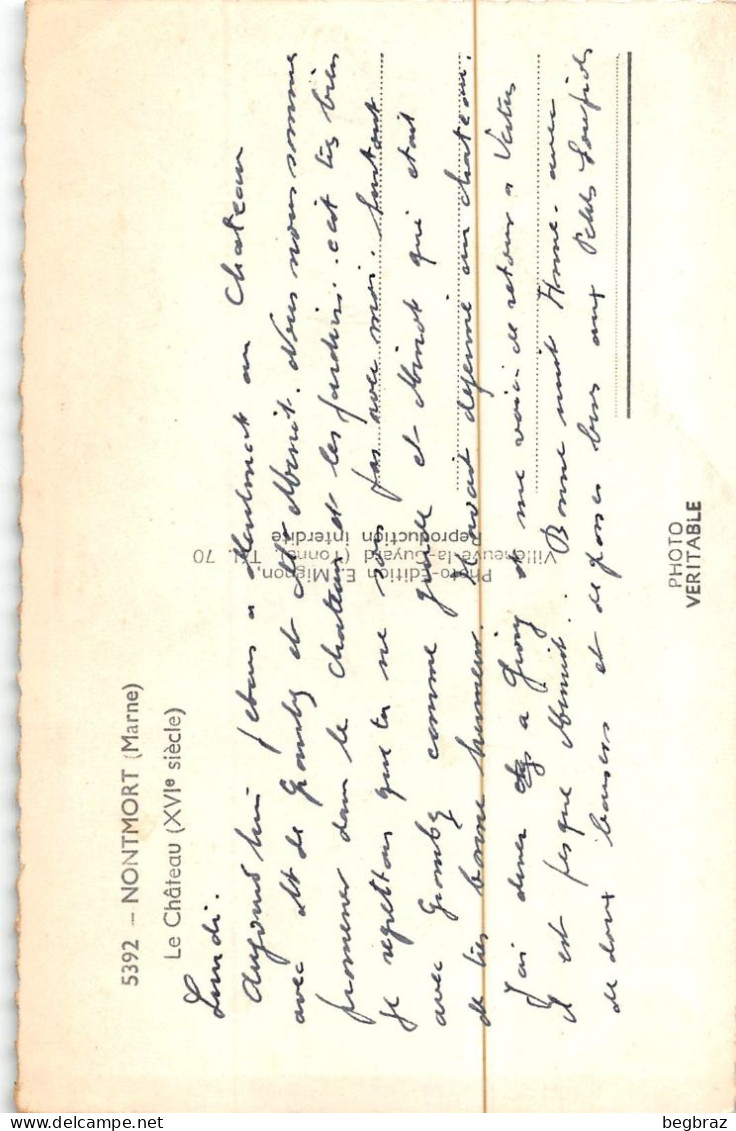 5392 -- NONTMORT (Marne)
Le Château (XVIe siècle)
Lundi.
Aujourd'hui j'étais a Montmort au Chateau
avec Mr de et Mr Minot. Nous nous sommes
promener dans le chateau et les jardins. c'est très bien
Je regrettais que tu ne sois pas avec moi. Surtout
avec comme guide et Minot qui était
de très bonne humeur. Il avait déjeuné au chateau.
J'ai diner a et me voici de retour a Vertus
Il est presque Minuit.. Bonne nuit Anne. avec
de doux baisers et de gros bises aux Petits
Photo-Edition E. Mignon,
Villeneuve-la-Guyard (Yonne) Tél. 70
Reproduction interdite
PHOTO
VERITABLE
begbraz www.delcampe.net